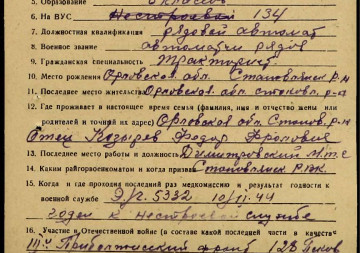 5. Образование 6 классов
6. На ВУС Нестроевой 134
7. Должностная квалификация рядовой автомат
8. Военное звание автоматчик рядов
9. Гражданская специальность Тракторист
10. Место рождения Орловская обл. Становлянск р-н
11. Последнее место жительства Орловск. обл. р-н
12. Где проживает в настоящее время семья (фамилия, имя и отчество жены или
родителей и точный их адрес) Орловская обл. Станов. р-н
Отец Козырев Федор Фролович
13. Последнее место работы и должность Димитровский М.т.с
14. Каким райгорвоенкоматом и когда призван Становлянск РВК.
15. Когда и где проходил последний раз медкомиссию и результат годности к
военной службе Э/г. 5332 10/11.44
годен к нестроевой службе
16. Участие в Отечественной войне (в составе какой последней части в качестве
Прибалтийский фронт 128